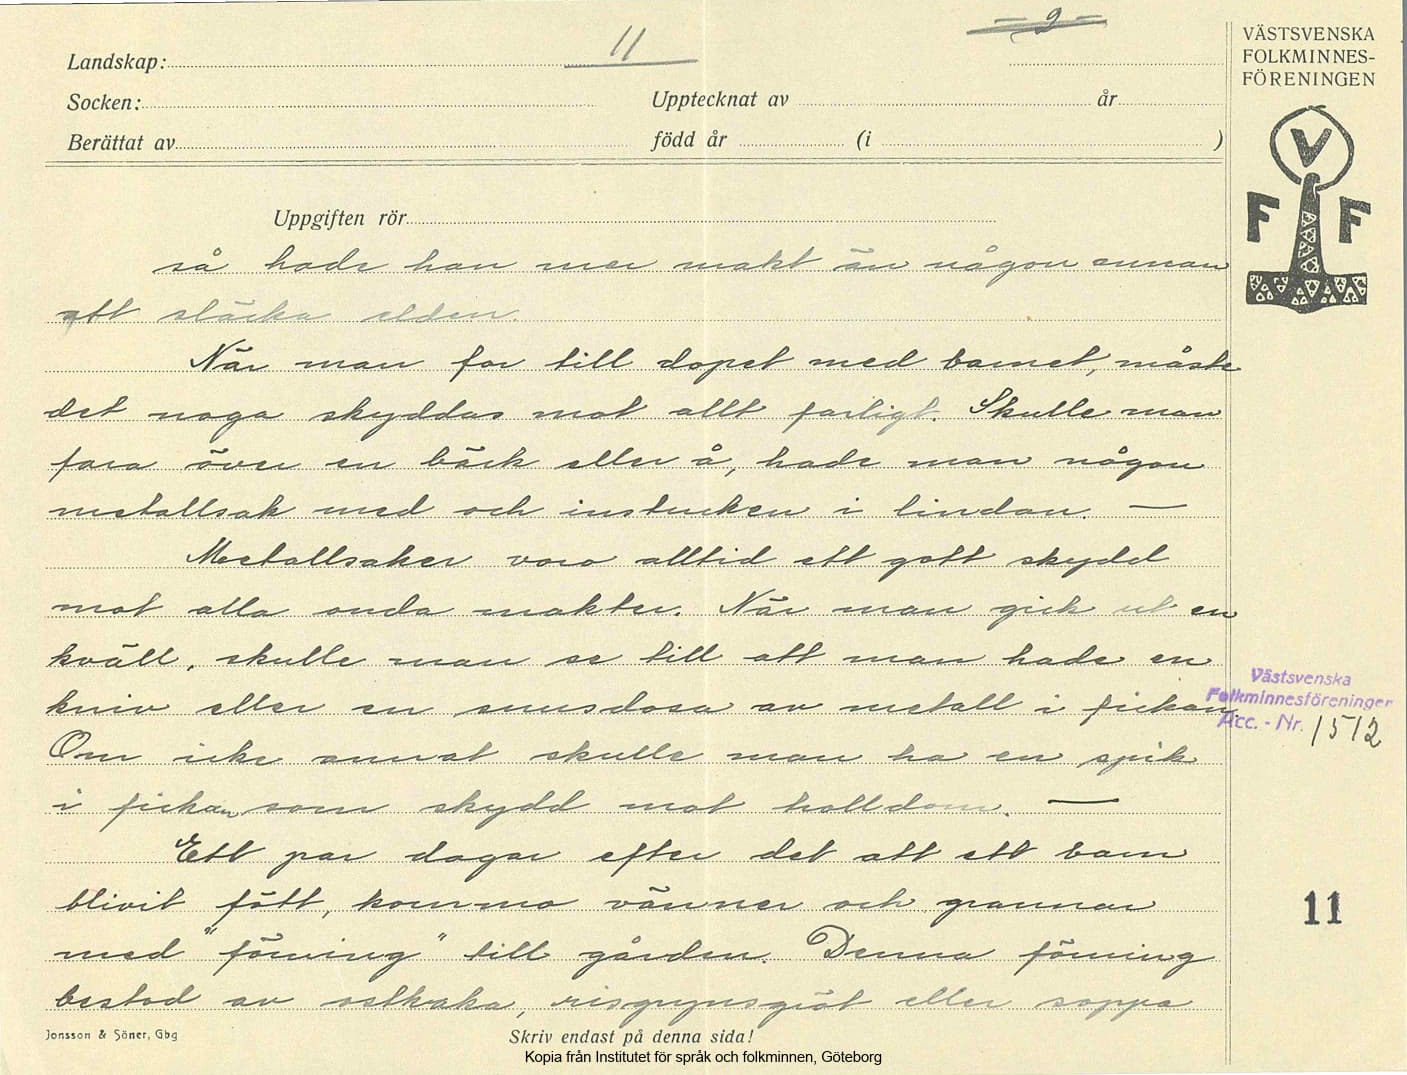 11
- 2 -
VÄSTSVENSKA
FOLKMINNES-
FÖRENINGEN
Landskap:
Socken:
Upptecknat av år
Berättat av född år (i )
V
F F
Uppgiften rör
så hade han mer makt än någon annan
att släcka elden.
När man for till dopet med barnet, måste
det noga skyddas mot allt farligt. Skulle man
fara över en bäck eller å, hade man någon
metallsak med och instucken i lindan. —
Metallsaker voro alltid ett gott skydd
mot alla onda makter. När man gick ut en
kväll, skulle man se till att man hade en
kniv eller en snusdosa av metall i fickan.
Om icke annat skulle man ha en spik
i fickan som skydd mot trolldom. —
Ett par dagar efter det att ett barn
blivit fött, kommo vänner och grannar
med "förning" till gården. Denna förning
bestod av ostkaka, risgrynsgröt eller soppa
Västsvenska
Folkminnesföreningen
Acc. - Nr. 1512
11
Jonsson & Söner, Gbg
Skriv endast på denna sida!
Kopia från Institutet för språk och folkminnen, Göteborg